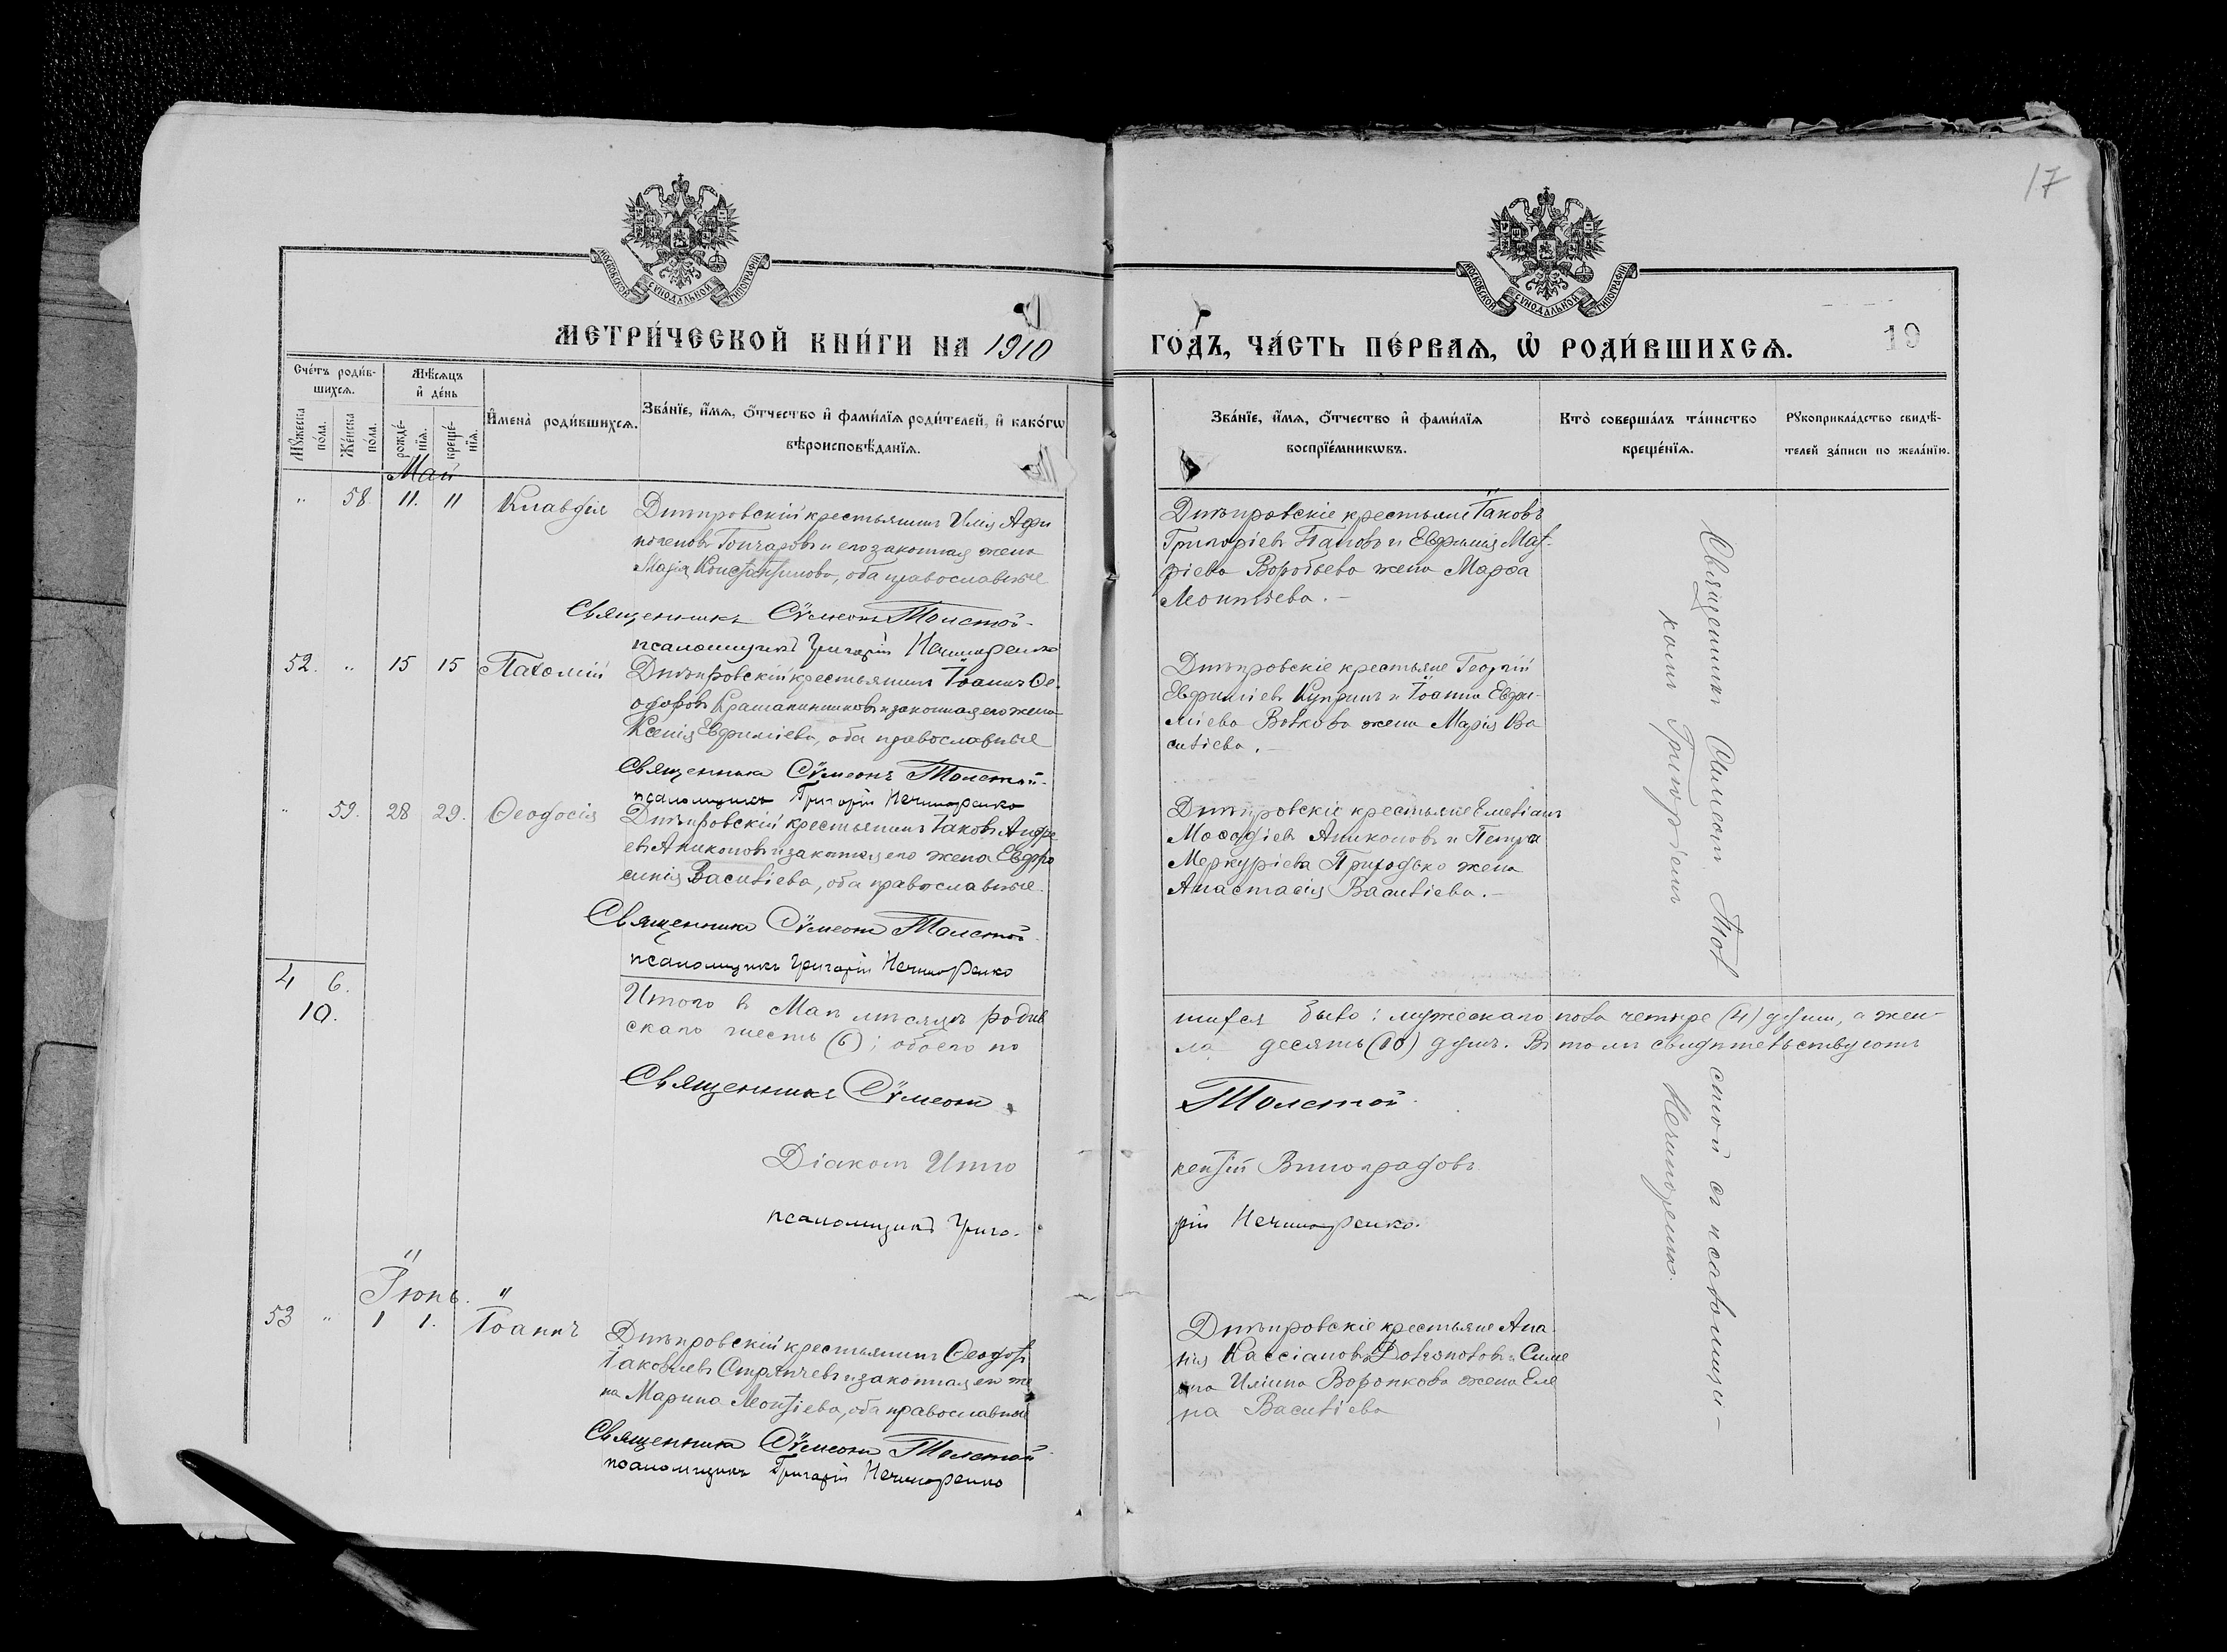 17
МОСКОВСКОЙ СѴНОДАЛЬНОЙ ТИПОГРАФІИ
МОСКОВСКОЙ СѴНОДАЛЬНОЙ ТИПОГРАФІИ
МЕТРИ́ЧЕСКОЙ КНИ́ГИ НА 1910
ГО́ДЪ, ЧА́СТЬ ПЕ́РВАѦ, Ѡ҆ РОДИ́ВШИХСѦ.
19
Сче́тъ роди́в-
шихсѧ.
Мꙋ́жеска
по́ла.
Же́нска
по́ла.
Мѣ́сѧцъ
и҆ де́нь
рожде́-
нїѧ.
креще́-
нїѧ.
И҆мена̀ роди́вшихсѧ.
Зва́нїе, и҆́мѧ, ѻ҆́тчество и҆ фами́лїѧ роди́телей, и҆ како́гѡ
вѣроисповѣ́данїѧ.
Зва́нїе, и҆́мѧ, ѻ҆́тчество и҆ фами́лїѧ
воспрїе́мникѡвъ.
Кто̀ соверша́лъ та́инство
креще́нїѧ.
Рꙋкоприкла́дство свидѣ́-
телей за́писи по жела́нїю.
Май
" 58. 11. 11 Клавдія
Днѣпровскій крестьянинъ Илія Афи
ногеновъ Гончаровъ и его законная жена
Марія Константинова, оба православные
Священникъ Сѵмеонъ Толстой.
псаломщикъ Григорій Нечипоренко
Днѣпровскіе крестьяне Іаковъ
Григоріевъ Поповъ и Евфимія Мат-
ріева Воробьева жена Марѳа
Леонтіева. —
52. " 15 15 Пахомій
Днѣпровскій крестьянинъ Іоаннъ Ѳе-
одоровъ и законная его жена
Ксенія Евфиміева, оба православные
Священникъ Сѵмеонъ Толстой.
псаломщикъ Григорій Нечипоренко
Днѣпровскіе крестьяне Георгій
Евфиміевъ Купринъ и Іоанна Евфи-
міева Волкова жена Марія Ва
силіева. —
" 59. 28 29. Ѳеодосія
Днѣпровскій крестьянинъ Іаковъ Андре
евъ Аниконовъ и законная его жена Евфро
синія Василіева, оба православные.
Священникъ Сѵмеонъ Толстой.
псаломщикъ Григорій Нечипоренко
Днѣпровскіе крестьяне Емеліанъ
Меѳодіевъ Аниконовъ и Петра
Меркуріева Приходько жена
Анастасія Василіева. —
4 6.
10.
Итого въ Маѣ мѣсяцѣ родив
шихся было: мужескаго пола четыре (4) души, а жен-
скаго шесть (6); обоего по
ла десять (10) душъ. Въ томъ свидѣтельствуютъ
Священникъ Сѵмеонъ
Толстой.
Діаконъ Инно
кентій Виноградовъ
псаломщикъ Григо-
рій Нечипоренко.
Іюнь.
53 " 1 1. Іоаннъ
Днѣпровскій крестьянинъ Ѳеодотъ
Іаковлевъ и законная его же
на Марина Леонтіева, оба православные
Священникъ Сѵмеонъ Толстой
псаломщикъ Григорій Нечипоренко
Днѣпровскіе крестьяне Ана
нія Кассіановъ и Симе
она Иліина Воронкова жена Еле
на Василіева
Священникъ Симеонъ Толстой съ псаломщи-
комъ Григоріемъ Нечипоренко.